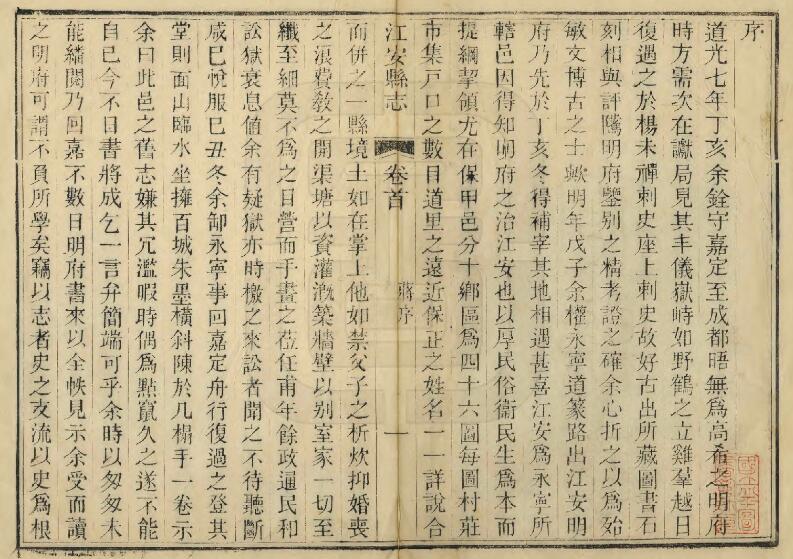 序
道光七年丁亥余銓守嘉定至成都晤無為高希之明府
時方需次在讞局見其丰儀嶽峙如野鶴之立雞羣越日
復遇之於楊未禪刺史座上刺史故好古出所藏圖書石
刻相與評騭明府鑒別之精考證之確余心折之以為殆
敏文博古之士歟明年戊子余權永寧道篆路出江安明
府乃先於丁亥冬得補宰其地相遇甚喜江安為永寧所
轄邑因得知明府之治江安也以厚民俗衛民生為本而
提綱挈領尤在保甲邑分十鄉區為四十六圖每圖村莊
市集戸口之數目道里之遠近保正之姓名一一詳說合
江安縣志
卷首
蔣序
一
而併之一縣境土如在掌上他如禁父子之析炊抑婚喪
之浪費敎之開渠塘以資灌漑築牆壁以別室家一切至
纖至細莫不為之日營而手畫之莅任甫年餘政通民和
訟獄衰息値余有疑獄亦時檄之來訟者聞之不待聽斷
咸已悅服已丑冬余卸永寧事回嘉定舟行復過之登其
堂則面山臨水坐擁百城朱墨橫斜陳於几榻手一卷示
余曰此邑之舊志嫌其冗濫暇時偶為點竄久之遂不能
自已今不日書將成乞一言弁簡端可乎余時以匆匆未
能繙閱乃回嘉不數日明府書來以全帙見示余受而讀
之明府可謂不負所學矣竊以志者史之支流以史為根